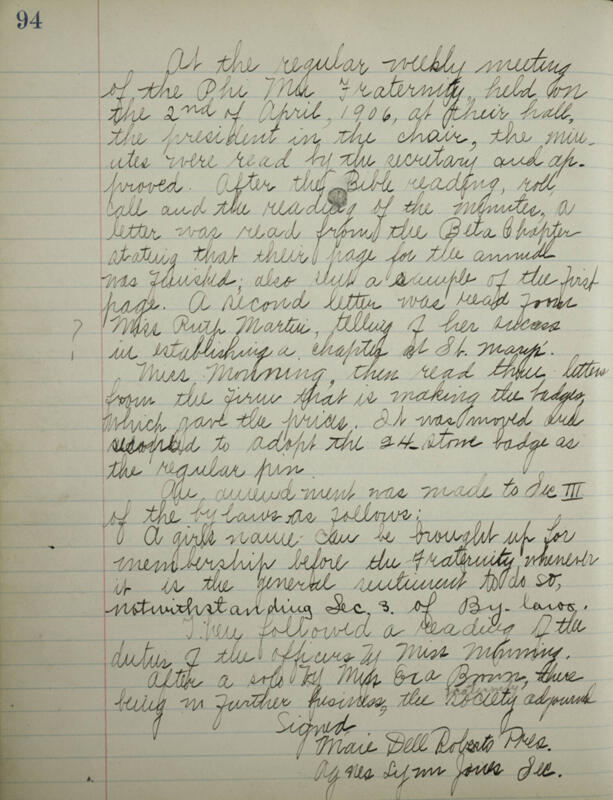 94
At the regular weekly meeting
of the Phi Mu Fraternity, held on
the 2nd of April, 1906, at their hall,
the president in the chair, the min-
utes were read by the secretary and ap-
proved. After the Bible reading, roll
call and the reading of the minutes, a
letter was read from the Beta Chapter
stating that their page for the annual
was finished; also sent a sample of the first
page. A second letter was read from
? Miss Ruth Martin, telling of her success
in establishing a chapter at St. Mary's.
Miss Monning, then read three letters
from the firm that is making the badges,
which gave the prices. It was moved and
to adopt the 24-stone badge as
the regular pin
An amendment was made to Sec III
of the by laws as follows:
A girls name can be brought up for
membership before the Fraternity, whenever
it is the general sentiment to do so,
notwithstanding Sec. 3. of By-laws.
Then followed a reading of the
duties of the officers by Miss Monning.
After a solo by Miss Brown, there
being no further business, the society adjourned
Signed
Marie Dell Roberts Pres.
Agnes Lynn Jones Sec.